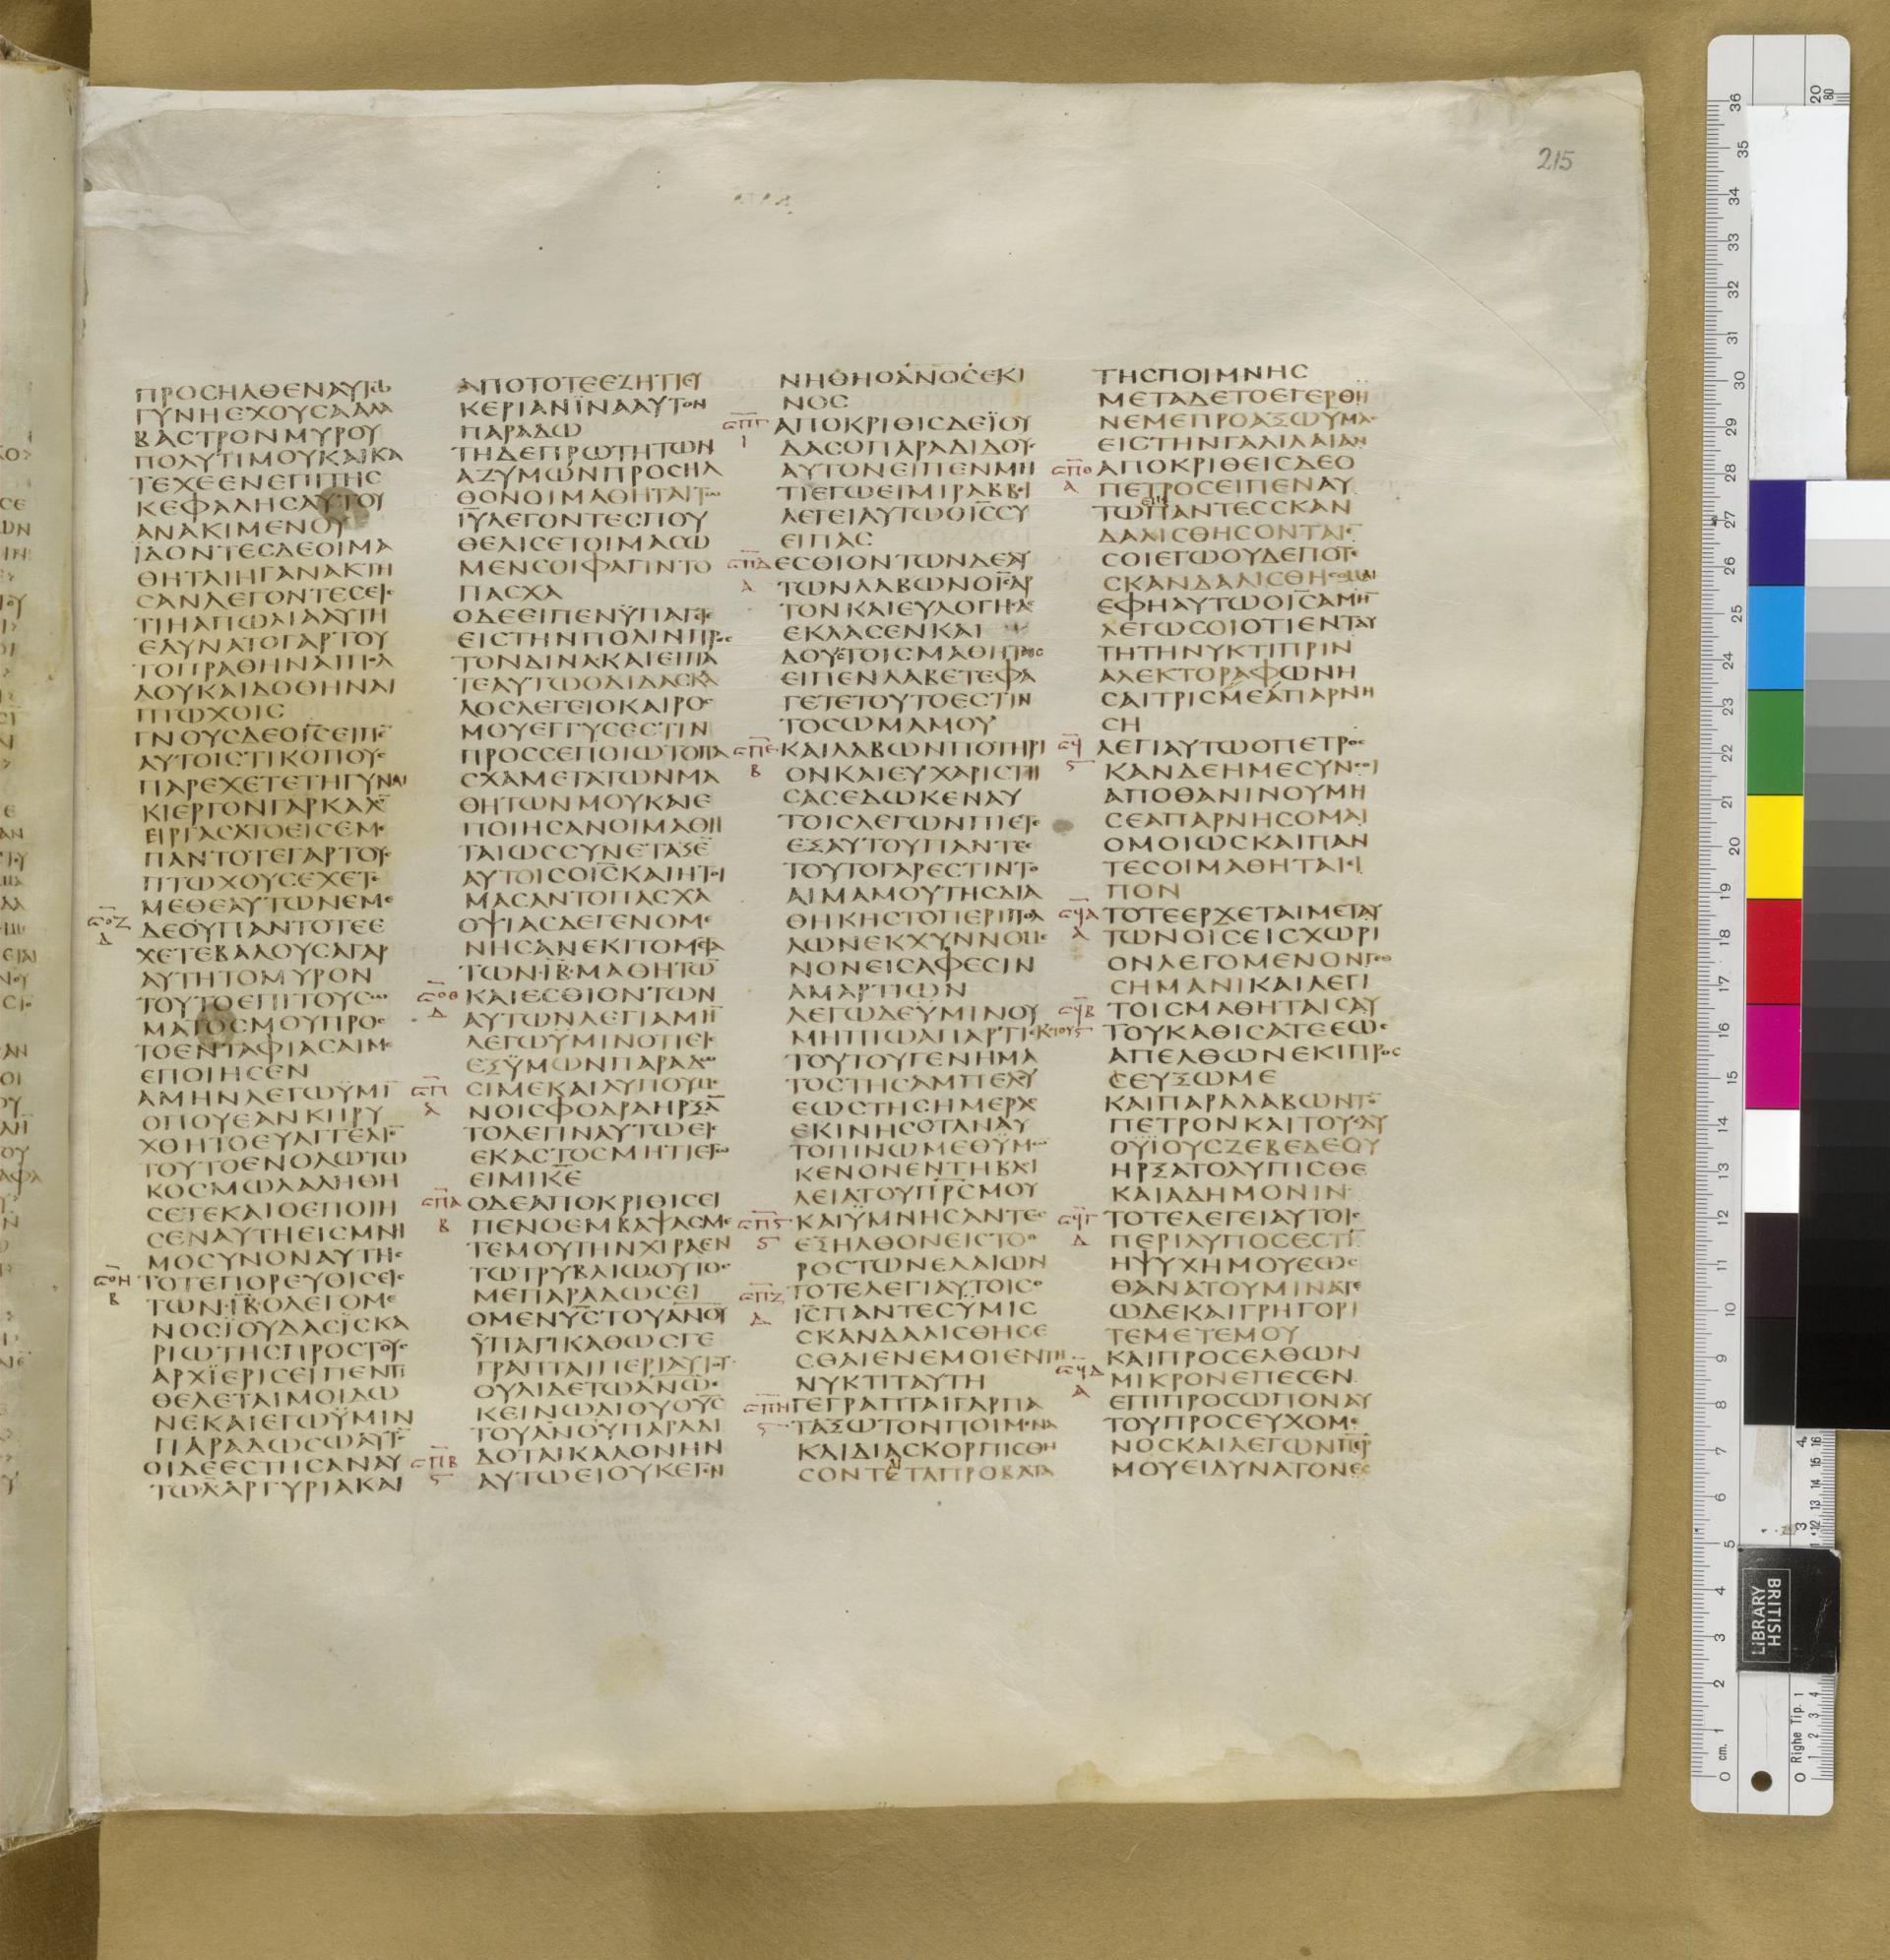 215
ΠΡΟΣΗΛΘΕΝΑΥΤΩ
ΓΥΝΗΕΧΟΥΣΑΑΛΑ
ΒΑΣΤΡΟΝΜΥΡΟΥ
ΠΟΛΥΤΙΜΟΥΚΑΙΚΑ
ΤΕΧΕΕΝΕΠΙΤΗΣ
ΚΕΦΑΛΗΣΑΥΤΟΥ
ΑΝΑΚΙΜΕΝΟΥ
ΪΔΟΝΤΕΣΔΕΟΙΜΑ
ΘΗΤΑΙΗΓΑΝΑΚΤΗ
ΣΑΝΛΕΓΟΝΤΕΣΕΙΣ
ΤΙΗΑΠΩΛΙΑΑΥΤΗ
ΕΔΥΝΑΤΟΓΑΡΤΟΥ
ΤΟΠΡΑΘΗΝΑΙΠΟΛ
ΛΟΥΚΑΙΔΟΘΗΝΑΙ
ΠΤΩΧΟΙΣ
ΓΝΟΥΣΔΕΟΙ̅Σ̅ΕΙΠΕ̅
ΑΥΤΟΙΣΤΙΚΟΠΟΥΣ
ΠΑΡΕΧΕΤΕΤΗΓΥΝΑΙ
ΚΙΕΡΓΟΝΓΑΡΚΑΛΟ̅
ΕΙΡΓΑΣΑΤΟΕΙΣΕΜΕ
ΠΑΝΤΟΤΕΓΑΡΤΟΥΣ
ΠΤΩΧΟΥΣΕΧΕΤΕ
ΜΕΘΕΑΥΤΩΝΕΜΕ
ΣΟΖ ΔΕΟΥΠΑΝΤΟΤΕΕ
Δ ΧΕΤΕΒΑΛΟΥΣΑΓΑΡ
ΑΥΤΗΤΟΜΥΡΟΝ
ΤΟΥΤΟΕΠΙΤΟΥΣΩ
ΜΑΤΟΣΜΟΥΠΡΟΣ
ΤΟΕΝΤΑΦΙΑΣΑΙΜΕ
ΕΠΟΙΗΣΕΝ
ΑΜΗΝΛΕΓΩΫΜΙ̅
ΟΠΟΥΕΑΝΚΗΡΥ
ΧΘΗΤΟΕΥΑΓΓΕΛΙΟ̅
ΤΟΥΤΟΕΝΟΛΩΤΩ
ΚΟΣΜΩΛΑΛΗΘΗ
ΣΕΤΕΚΑΙΟΕΠΟΙΗ
ΣΕΝΑΥΤΗΕΙΣΜΝΗ
ΜΟΣΥΝΟΝΑΥΤΗΣ
ΣΟΗ ΤΟΤΕΠΟΡΕΥΘΙΣΕΙΣ
Β ΤΩΝ·Ι̅Β̅·ΟΛΕΓΟΜΕ
ΝΟΣΪΟΥΔΑΣΪΣΚΑ
ΡΙΩΤΗΣΠΡΟΣΤΟΥΣ
ΑΡΧΪΕΡΙΣΕΙΠΕΝΤΙ
ΘΕΛΕΤΑΙΜΟΙΔΩ
ΝΕΚΑΙΕΓΩΫΜΙΝ
ΠΑΡΑΔΩΣΩΑΥΤΟ̅
ΟΙΔΕΕΣΤΗΣΑΝΑΥ
ΤΩΛ̅ΑΡΓΥΡΙΑΚΑΙ
ΑΠΟΤΟΤΕΕΖΗΤΙΕΥ
ΚΕΡΙΑΝΪΝΑΑΥΤΟΝ
ΠΑΡΑΔΩ
ΤΗΔΕΠΡΩΤΗΤΩΝ
ΑΖΥΜΩΝΠΡΟΣΗΛ
ΘΟΝΟΙΜΑΘΗΤΑΙΤΩ
Ι̅Υ̅ΛΕΓΟΝΤΕΣΠΟΥ
ΘΕΛΙΣΕΤΟΙΜΑΣΩ
ΜΕΝΣΟΙΦΑΓΙΝΤΟ
ΠΑΣΧΑ
ΟΔΕΕΙΠΕΝΫΠΑΓΕΤΕ
ΕΙΣΤΗΝΠΟΛΙΝΠΡΟΣ
ΤΟΝΔΙΝΑΚΑΙΕΙΠΑ
ΤΕΑΥΤΩΟΔΙΔΑΣΚΑ
ΛΟΣΛΕΓΕΙΟΚΑΙΡΟΣ
ΜΟΥΕΓΓΥΣΕΣΤΙΝ
ΠΡΟΣΣΕΠΟΙΩΤΟΠΑ
ΣΧΑΜΕΤΑΤΩΝΜΑ
ΘΗΤΩΝΜΟΥΚΑΙΕ
ΠΟΙΗΣΑΝΟΙΜΑΘΗ
ΤΑΙΩΣΣΥΝΕΤΑΞΕ̅
ΑΥΤΟΙΣΟΙ̅Σ̅ΚΑΙΗΤΟΙ
ΜΑΣΑΝΤΟΠΑΣΧΑ
ΟΨΙΑΣΔΕΓΕΝΟΜΕ
ΝΗΣΑΝΕΚΙΤΟΜΕΤΑ
ΤΩΝ·Ι̅Β̅·ΜΑΘΗΤΩ̅
ΣΟΘ ΚΑΙΕΣΘΙΟΝΤΩΝ
Δ ΑΥΤΩΝΛΕΓΙΑΜΗ̅
ΛΕΓΩΫΜΙΝΟΤΙΕΙΣ
ΕΞΫΜΩΝΠΑΡΑΔΩ
ΣΠ ΣΙΜΕΚΑΙΛΥΠΟΥΜΕ
Α ΝΟΙΣΦΟΔΡΑΗΡΞΑ̅
ΤΟΛΕΓΙΝΑΥΤΩΕΙΣ
ΕΚΑΣΤΟΣΜΗΤΙΕΓΩ
ΕΙΜΙΚ̅Ε̅
ΣΠΑ ΟΔΕΑΠΟΚΡΙΘΙΣΕΙ
Β ΠΕΝΟΕΜΒΑΨΑΣΜΕ
ΤΕΜΟΥΤΗΝΧΙΡΑΕΝ
ΤΩΤΡΥΒΛΙΩΟΥΤΟΣ
ΜΕΠΑΡΑΔΩΣΕΙ
ΟΜΕΝΥ̅Σ̅ΤΟΥΑ̅Ν̅Ο̅Υ̅
ΫΠΑΓΙΚΑΘΩΣΓΕ
ΓΡΑΠΤΑΙΠΕΡΙΑΥΤΟΥ
ΟΥΑΙΔΕΤΩΑ̅Ν̅Ω̅
ΚΕΙΝΩΔΙΟΥΟΥ̅Σ̅
ΤΟΥΑ̅Ν̅Ο̅Υ̅ΠΑΡΑΔΙ
ΣΠΒ ΔΟΤΑΙΚΑΛΟΝΗΝ
Ϛ ΑΥΤΩΕΙΟΥΚΕΓΕΝ
ΝΗΘΗΟΑ̅Ν̅Ο̅Σ̅ΕΚΙ
ΝΟΣ
ΣΠΓ ΑΠΟΚΡΙΘΙΣΔΕΪΟΥ
Ι ΔΑΣΟΠΑΡΑΔΙΔΟΥΣ
ΑΥΤΟΝΕΙΠΕΝΜΗ
ΤΙΕΓΩΕΙΜΙΡΑΒΒΕΙ
ΛΕΓΕΙΑΥΤΩΟΙ̅Σ̅ΣΥ
ΕΙΠΑΣ
ΣΠΔ ΕΣΘΙΟΝΤΩΝΔΕΑΥ
Α ΤΩΝΛΑΒΩΝΟΙ̅Σ̅ΑΡ
ΤΟΝΚΑΙΕΥΛΟΓΗΣΑΣ
ΕΚΛΑΣΕΝΚΑΙ
ΔΟΥΣΤΟΙΣΜΑΘΗΤΑΙΣ
ΕΙΠΕΝΛΑΒΕΤΕΦΑ
ΓΕΤΕΤΟΥΤΟΕΣΤΙΝ
ΤΟΣΩΜΑΜΟΥ
ΣΠΕ ΚΑΙΛΑΒΩΝΠΟΤΗΡΙ
Β ΟΝΚΑΙΕΥΧΑΡΙΣΤΗ
ΣΑΣΕΔΩΚΕΝΑΥ
ΤΟΙΣΛΕΓΩΝΠΙΕΤΕ
ΕΞΑΥΤΟΥΠΑΝΤΕΣ
ΤΟΥΤΟΓΑΡΕΣΤΙΝΤΟ
ΑΙΜΑΜΟΥΤΗΣΔΙΑ
ΘΗΚΗΣΤΟΠΕΡΙΠΟΛ
ΛΩΝΕΚΧΥΝΝΟΜΕ
ΝΟΝΕΙΣΑΦΕΣΙΝ
ΑΜΑΡΤΙΩΝ
ΛΕΓΩΔΕΫΜΙΝΟΥ
ΜΗΠΙΩΑΠΑΡΤΙΕΚΤΟΥ
ΤΟΥΤΟΥΓΕΝΗΜΑ
ΤΟΣΤΗΣΑΜΠΕΛΟΥ
ΕΩΣΤΗΣΗΜΕΡΑΣ
ΕΚΙΝΗΣΟΤΑΝΑΥ
ΤΟΠΙΝΩΜΕΘΫΜΩΝ
ΚΕΝΟΝΕΝΤΗΒΑΣΙ
ΛΕΙΑΤΟΥΠ̅Ρ̅Σ̅ΜΟΥ
ΣΠϚ ΚΑΙΫΜΝΗΣΑΝΤΕΣ
Ϛ ΕΞΗΛΘΟΝΕΙΣΤΟΟ
ΡΟΣΤΩΝΕΛΑΙΩΝ
ΣΠΖ ΤΟΤΕΛΕΓΙΑΥΤΟΙΣΟ
Δ Ι̅Σ̅ΠΑΝΤΕΣΫΜΙΣ
ΣΚΑΝΔΑΛΙΣΘΗΣΕ
ΣΘΑΙΕΝΕΜΟΙΕΝΤΗ
ΝΥΚΤΙΤΑΥΤΗ
ΣΠΗ ΓΕΓΡΑΠΤΑΙΓΑΡΠΑ
Ϛ ΤΑΞΩΤΟΝΠΟΙΜΕΝΑ
ΚΑΙΔΙΑΣΚΟΡΠΙΣΘΗ
ΣΟΝΤΕΤΑΠΡΟΒΑΤΑ
ΤΗΣΠΟΙΜΝΗΣ
ΜΕΤΑΔΕΤΟΕΓΕΡΘΗ
ΝΕΜΕΠΡΟΑΞΩΫΜΑΣ
ΕΙΣΤΗΝΓΑΛΙΛΑΙΑΝ
ΣΠΘ ΑΠΟΚΡΙΘΕΙΣΔΕΟ
Α ΠΕΤΡΟΣΕΙΠΕΝΑΥ
ΤΩΠΑΝΤΕΣΣΚΑΝ
ΔΑΛΙΣΘΗΣΟΝΤΑΙΕ̅
ΣΟΙΕΓΩΟΥΔΕΠΟΤΕ
ΣΚΑΝΔΑΛΙΣΘΗΣΟΜΑΙ
ΕΦΗΑΥΤΩΟΙ̅Σ̅ΑΜΗ̅
ΛΕΓΩΣΟΙΟΤΙΕΝΤΑΥ
ΤΗΤΗΝΥΚΤΙΠΡΙΝ
ΑΛΕΚΤΟΡΑΦΩΝΗ
ΣΑΙΤΡΙΣΜΕΑΠΑΡΝΗ
ΣΗ
ΣϞ ΛΕΓΙΑΥΤΩΟΠΕΤΡΟΣ
Ϛ ΚΑΝΔΕΗΜΕΣΥΝΣΟΙ
ΑΠΟΘΑΝΙΝΟΥΜΗ
ΣΕΑΠΑΡΝΗΣΟΜΑΙ
ΟΜΟΙΩΣΚΑΙΠΑΝ
ΤΕΣΟΙΜΑΘΗΤΑΙΕΙ
ΠΟΝ
ΣϞΑ ΤΟΤΕΕΡΧΕΤΑΙΜΕΤΑΥ
Α ΤΩΝΟΙ̅Σ̅ΕΙΣΧΩΡΙ
ΟΝΛΕΓΟΜΕΝΟΝΓΕΘ
ΣΗΜΑΝΙΚΑΙΛΕΓΙ
ΣϞΒ ΤΟΙΣΜΑΘΗΤΑΙΣΑΥ
Ϛ ΤΟΥΚΑΘΙΣΑΤΕΕΩΣ
ΑΠΕΛΘΩΝΕΚΙΠΡΟΣ
ΣΕΥΞΩΜΕ
ΚΑΙΠΑΡΑΛΑΒΩΝΤΟ̅
ΠΕΤΡΟΝΚΑΙΤΟΥΣΔΥ
ΟΥΪΟΥΣΖΕΒΕΔΕΟΥ
ΗΡΞΑΤΟΛΥΠΙΣΘΕ
ΚΑΙΑΔΗΜΟΝΙΝ
ΣϞΓ ΤΟΤΕΛΕΓΕΙΑΥΤΟΙΣ
Δ ΠΕΡΙΛΥΠΟΣΕΣΤΙ̅
ΗΨΥΧΗΜΟΥΕΩΣ
ΘΑΝΑΤΟΥΜΙΝΑΤΕ
ΩΔΕΚΑΙΓΡΗΓΟΡΙ
ΤΕΜΕΤΕΜΟΥ
ΚΑΙΠΡΟΣΕΛΘΩΝ
ΣϞΔ ΜΙΚΡΟΝΕΠΕΣΕΝ
Α ΕΠΙΠΡΟΣΩΠΟΝΑΥ
ΤΟΥΠΡΟΣΕΥΧΟΜΕ
ΝΟΣΚΑΙΛΕΓΩΝΠΕΡ
ΜΟΥΕΙΔΥΝΑΤΟΝΕΣ
BRITISH
LIBRARY